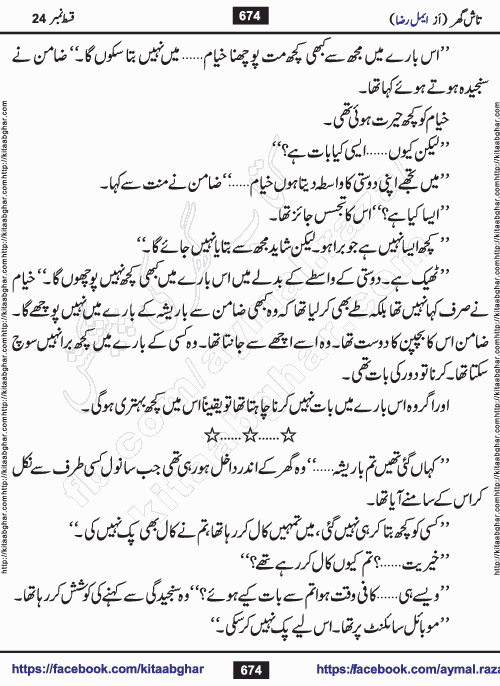 تاش گھر (از ایمل رضا) 674 قسط نمبر 24
”اس بارے میں مجھ سے کبھی کچھ مت پوچھنا خیام...... میں نہیں بتا سکوں گا۔“ ضامن نے
سنجیدہ ہوتے ہوئے کہا تھا۔
خیام کو کچھ حیرت ہوئی تھی۔
”لیکن کیوں...... ایسی کیا بات ہے؟“
”میں تجھے اپنی دوستی کا واسطہ دیتا ہوں خیام......“ ضامن نے منت سے کہا۔
”ایسا کیا ہے؟“ اس کا تجسس جائز تھا۔
”کچھ ایسا نہیں ہے جو برا ہو۔ لیکن شاید مجھ سے بتایا نہیں جائے گا۔“
”ٹھیک ہے۔ دوستی کے واسطے کے بدلے میں اس بارے میں کبھی کچھ نہیں پوچھوں گا۔“ خیام
نے صرف کہا نہیں تھا بلکہ طے بھی کر لیا تھا کہ وہ بھی ضامن سے باریشہ کے بارے میں نہیں پوچھے گا۔
ضامن اس کا بچپن کا دوست تھا۔ وہ اسے اچھے سے جانتا تھا۔ وہ کسی کے بارے میں کچھ برا نہیں سوچ
سکتا تھا۔ کرنا تو دور کی بات تھی۔
اور اگر وہ اس بارے میں بات نہیں کرنا چاہتا تھا تو یقیناً اس میں کچھ بہتری ہو گی۔
☆......☆......☆
”کہاں گئی تھیں تم باریشہ......“ وہ گھر کے اندر داخل ہو رہی تھی جب سانول کسی طرف سے نکل
کر اس کے سامنے آیا تھا۔
”کسی کو کچھ بتا کر ہی نہیں گئی، میں تمہیں کال کر رہا تھا، تم نے کال بھی پک نہیں کی۔“
”خیریت......؟ تم کیوں کال کر رہے تھے؟“
”ویسے ہی...... کافی وقت ہوا تم سے بات کیے ہوئے؟“ وہ سنجیدگی سے کہنے کی کوشش کر رہا تھا۔
”موبائل سائلنٹ پر تھا۔ اس لیے پک نہیں کر سکی۔“
https://facebook.com/kitaabghar 674 https://facebook.com/aymal.raza
http://kitaabghar.com